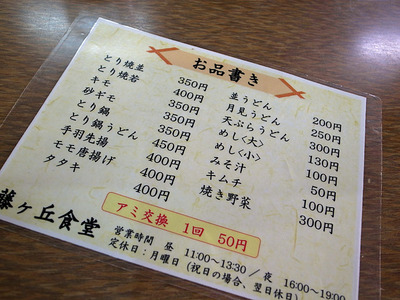 お品書き
とり焼並 350円
とり焼若 400円
キモ 350円
砂ギモ 350円
とり鍋 350円
とり鍋うどん 450円
手羽先揚 400円
モモ唐揚げ 400円
タタキ 400円
並うどん 200円
月見うどん 250円
天ぷらうどん 300円
めし<大> 130円
めし<小> 100円
みそ汁 50円
キムチ 100円
焼き野菜 300円
アミ交換 1回 50円
藤ヶ丘食堂
営業時間 昼 11:00~13:30 / 夜 16:00~19:00
定休日:月曜日(祝日の場合、翌日休日)